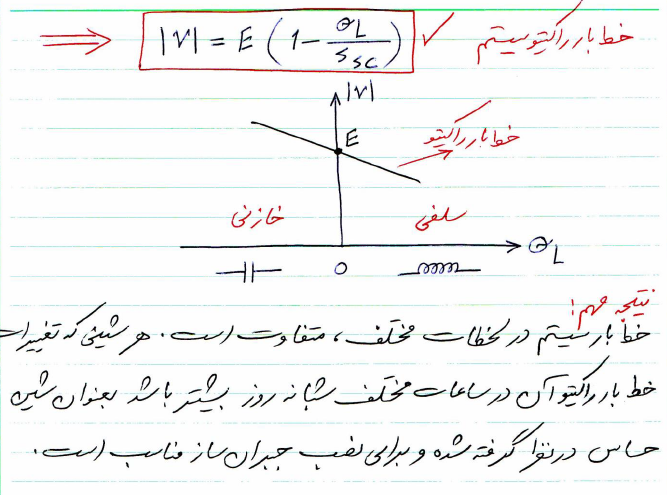 ⟹ |V| = E (1 - Q_L / S_SC) ✓ خط بار راکتیو سیستم
|V|
E
خط بار راکتیو
خازنی سلفی
0 Q_L
نتیجه مهم:
خط بار سیستم در لحظات مختلف، متفاوت است. هر شینی که تغییرات
خط بار راکتیو آن در ساعات مختلف شبانه روز بیشتر باشد بعنوان شین
حساس در نظر گرفته شده و برای نصب جبران ساز مناسب است.